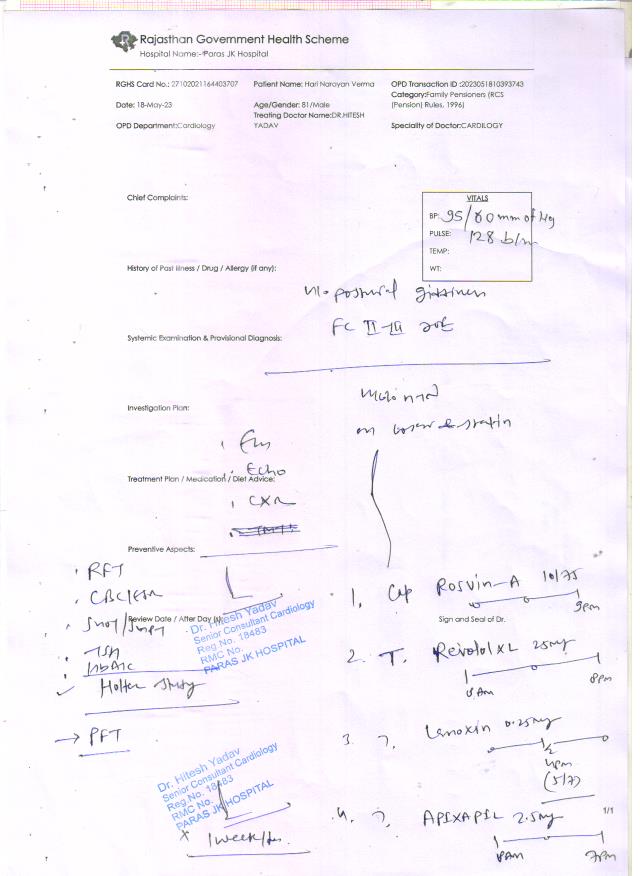 Rajasthan Government Health Scheme
Hospital Name:-Paras JK Hospital
RGHS Card No.: 27102021164403707
Patient Name: Hari Narayan Verma
OPD Transaction ID :2023051810393743
Category:Family Pensioners (RCS (Pension) Rules, 1996)
Date: 18-May-23
Age/Gender: 81/Male
Treating Doctor Name:DR.HITESH YADAV
OPD Department:Cardiology
Speciality of Doctor:CARDILOGY
Chief Complaints:
VITALS
BP: 95/60 mm of Hg
PULSE: 128 b/m
TEMP:
WT:
History of Past Illness / Drug / Allergy (if any):
postural
FC II-III
Systemic Examination & Provisional Diagnosis:
Investigation Plan:
on
Echo
Treatment Plan / Medication / Diet Advice:
CXR
Preventive Aspects:
RFT
CBC/ESR
SGOT/SGPT
TSH
HbA1c
Holter Study
→ PFT
Review Date / After Day (s):
Dr. Hitesh Yadav
Senior Consultant Cardiology
Reg No. 18483
RMC No.
PARAS JK HOSPITAL
Sign and Seal of Dr.
1. Cap Rosuin-A 10/75
9pm
2. T. Revelol XL 25mg
8Am 8pm
3. T. Lanoxin 0.25mg
1/2
4pm
(5/7)
4. T. APIXAPIL 2.5mg
8AM 7PM
1/1
Dr. Hitesh Yadav
Senior Consultant Cardiology
Reg No. 18483
RMC No.
PARAS JK HOSPITAL
x 1 week